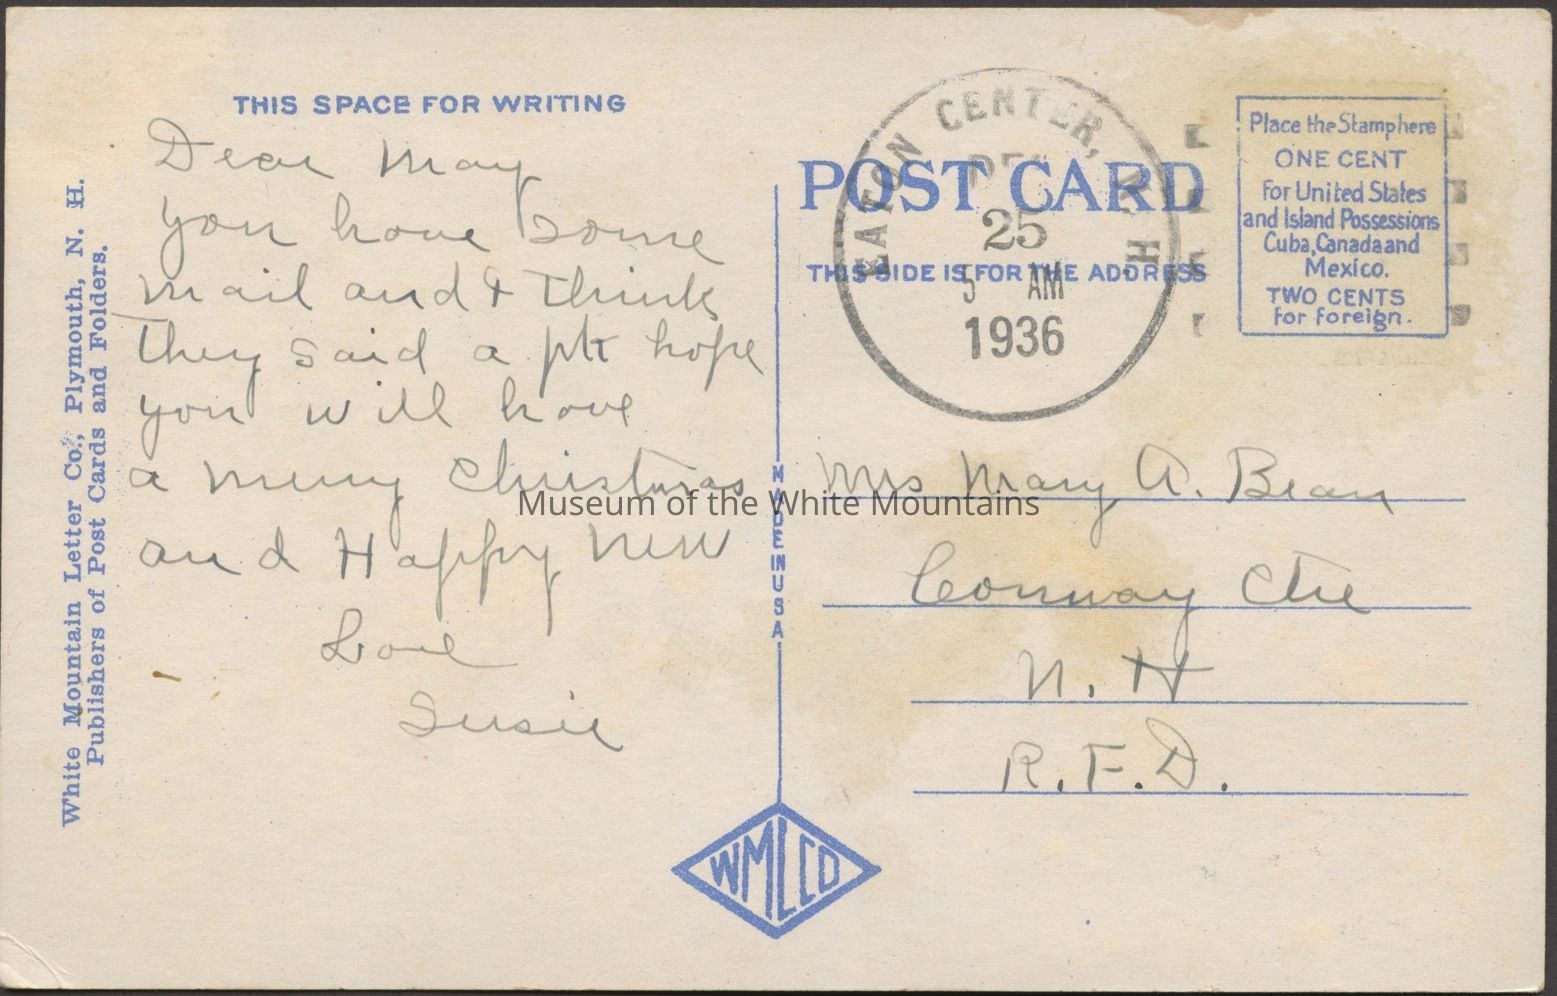 THIS SPACE FOR WRITING
Dear May
you have some
mail and I think
they said a pk hope
you will have
a merry Christmas
and Happy New
Love
Susie
White Mountain Letter Co., Plymouth, N. H.
Publishers of Post Cards and Folders.
MADE IN USA
WMLCO
EATON CENTER, N. H
DEC
25
5 AM
1936
POST CARD
THIS SIDE IS FOR THE ADDRESS
Place the Stamp here
ONE CENT
For United States
and Island Possessions
Cuba, Canada and
Mexico.
TWO CENTS
for foreign.
Mrs Mary A. Bean
Conway Ctre
N. H
R. F. D.
Museum of the White Mountains